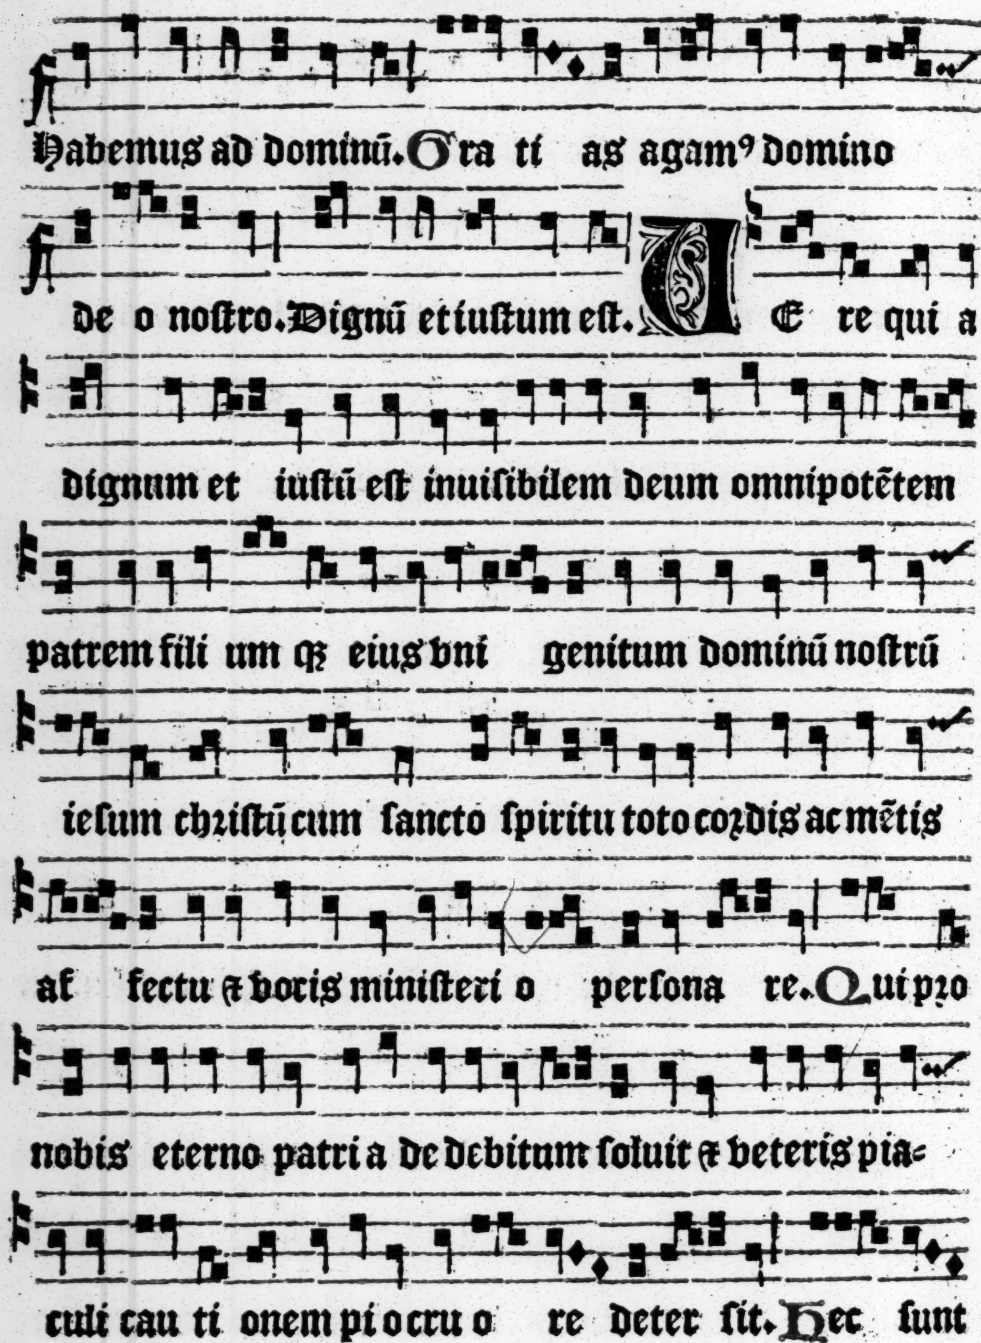 Habemus ad dominū. Gra ti as agamꝰ domino
de o nostro. Dignū et iustum est. V E re qui a
dignum et iustū est inuisibilem deum omnipotētem
patrem fili um qꝫ eius vni genitum dominū nostrū
iesum christū cum sancto spiritu toto cordis ac mētis
af fectu ⁊ vocis ministeri o persona re. Qui pro
nobis eterno patri a de debitum soluit ⁊ veteris pia⸗
culi cau ti onem pio cru o re deter sit. Hec sunt